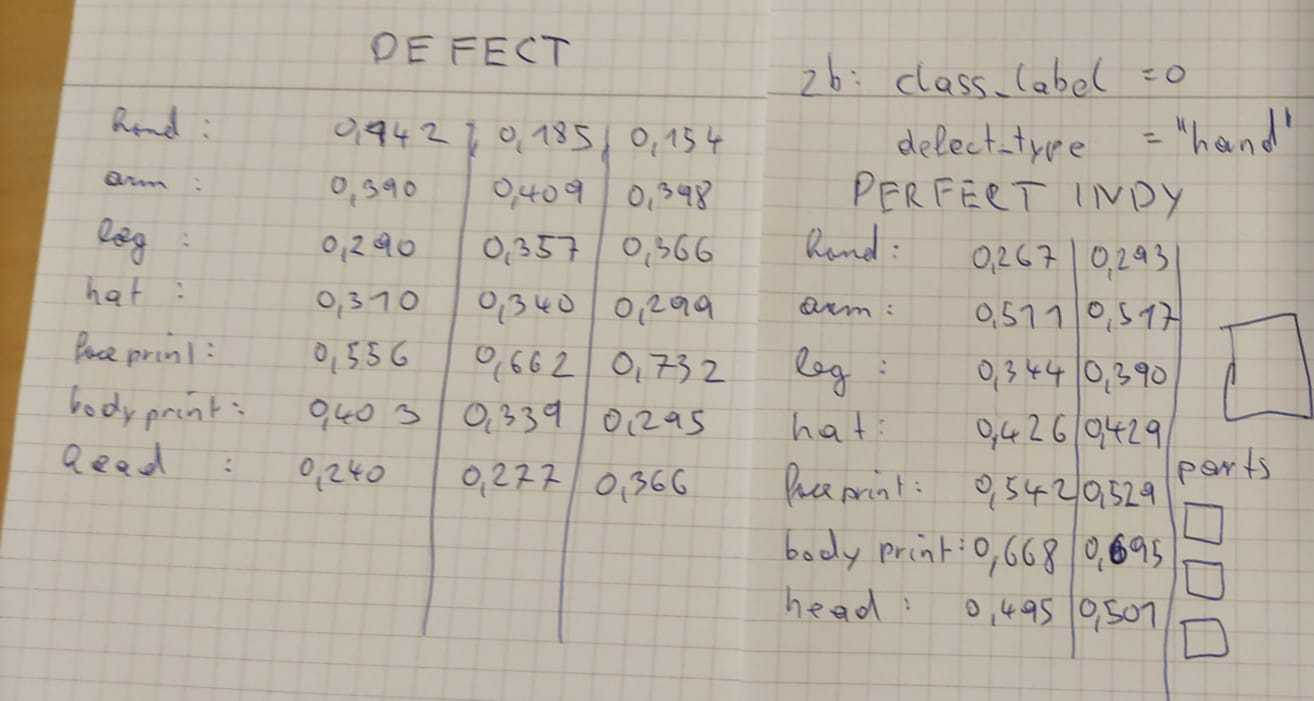 DEFECT
hand : 0,442 | 0,185 | 0,154
arm : 0,390 0,409 0,398
leg : 0,290 0,357 0,366
hat : 0,310 0,340 0,299
face print: 0,556 0,662 0,732
body print: 0,403 0,339 0,295
head : 0,240 0,277 0,366
2b: class_label = 0
defect_type = "hand"
PERFECT INDY
hand: 0,267 0,293
arm: 0,511 0,517
leg : 0,344 0,390
hat: 0,426 0,429
face print: 0,542 0,529
body print: 0,668 0,695
head : 0,495 0,501
parts